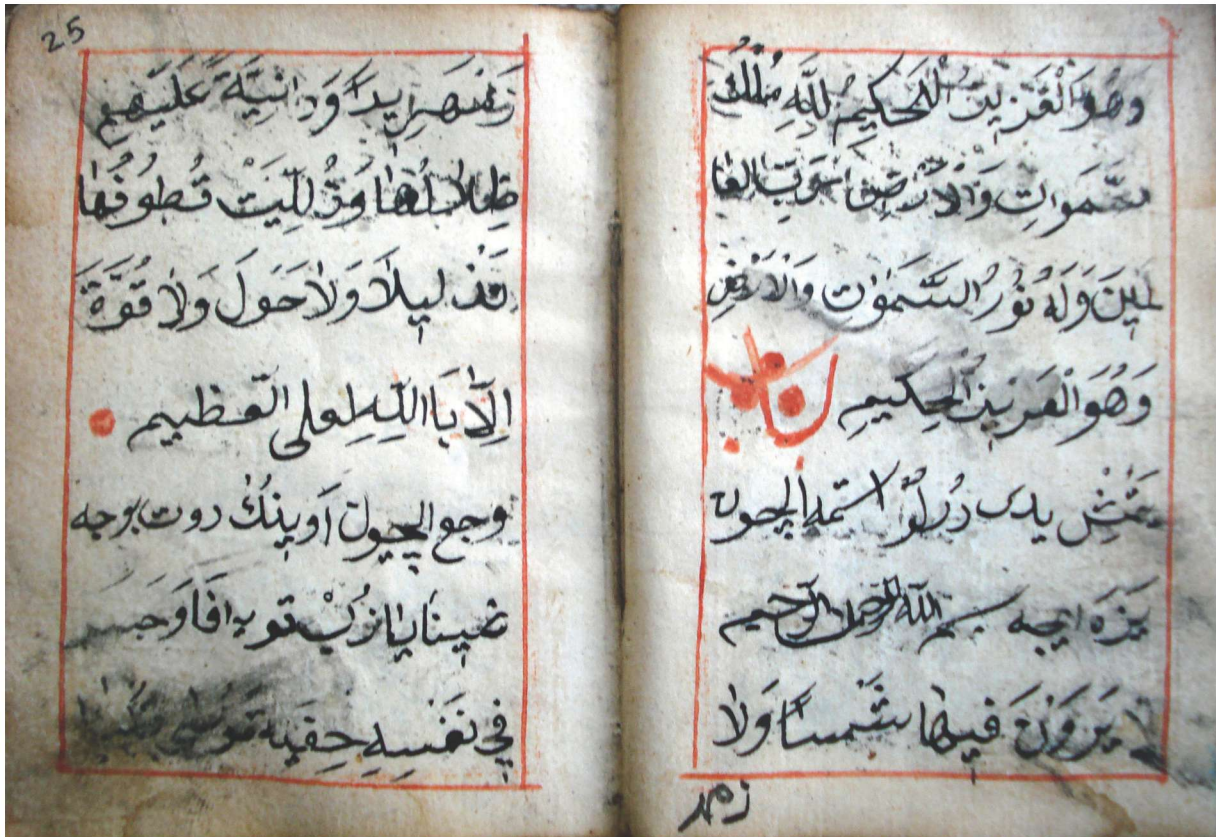 وَهُوَ الْعَزِيزُ الْحَكِيمُ لِلّٰهِ مُلْكُ
سَّمَوَاتِ وَالْاَرْضِ رَبِّ الْعَا
لَمِينَ وَلَهُ نُورُ السَّمَوٰاتِ وَالْاَرْضِ
وَهُوَ الْعَزِيزُ الْحَكِيمِ باب
يدى دُرلُو استمه ايچون
يَزَه ايچه بسم الله الرحمن الرحيم
لا يَرَوْنَ فِيهَا شَمْساً وَلا
زمهر
25
زَمْهَرِيداً وَدَانِيَةً عَلَيْهِمْ
ظِلَالُهَا وَذُلِّلَتْ قُطُوفُهَا
تَذْلِيلاً وَلاٰ حَوَلَ وَلاٰ قُوَّةَ
اِلاَّ بَاا اللّٰهِ لعلى العظيم
وجع ايچون اوپنك دوت بوجه
فِي نَفْسِهِ خِفْيَةً مُوسٰى